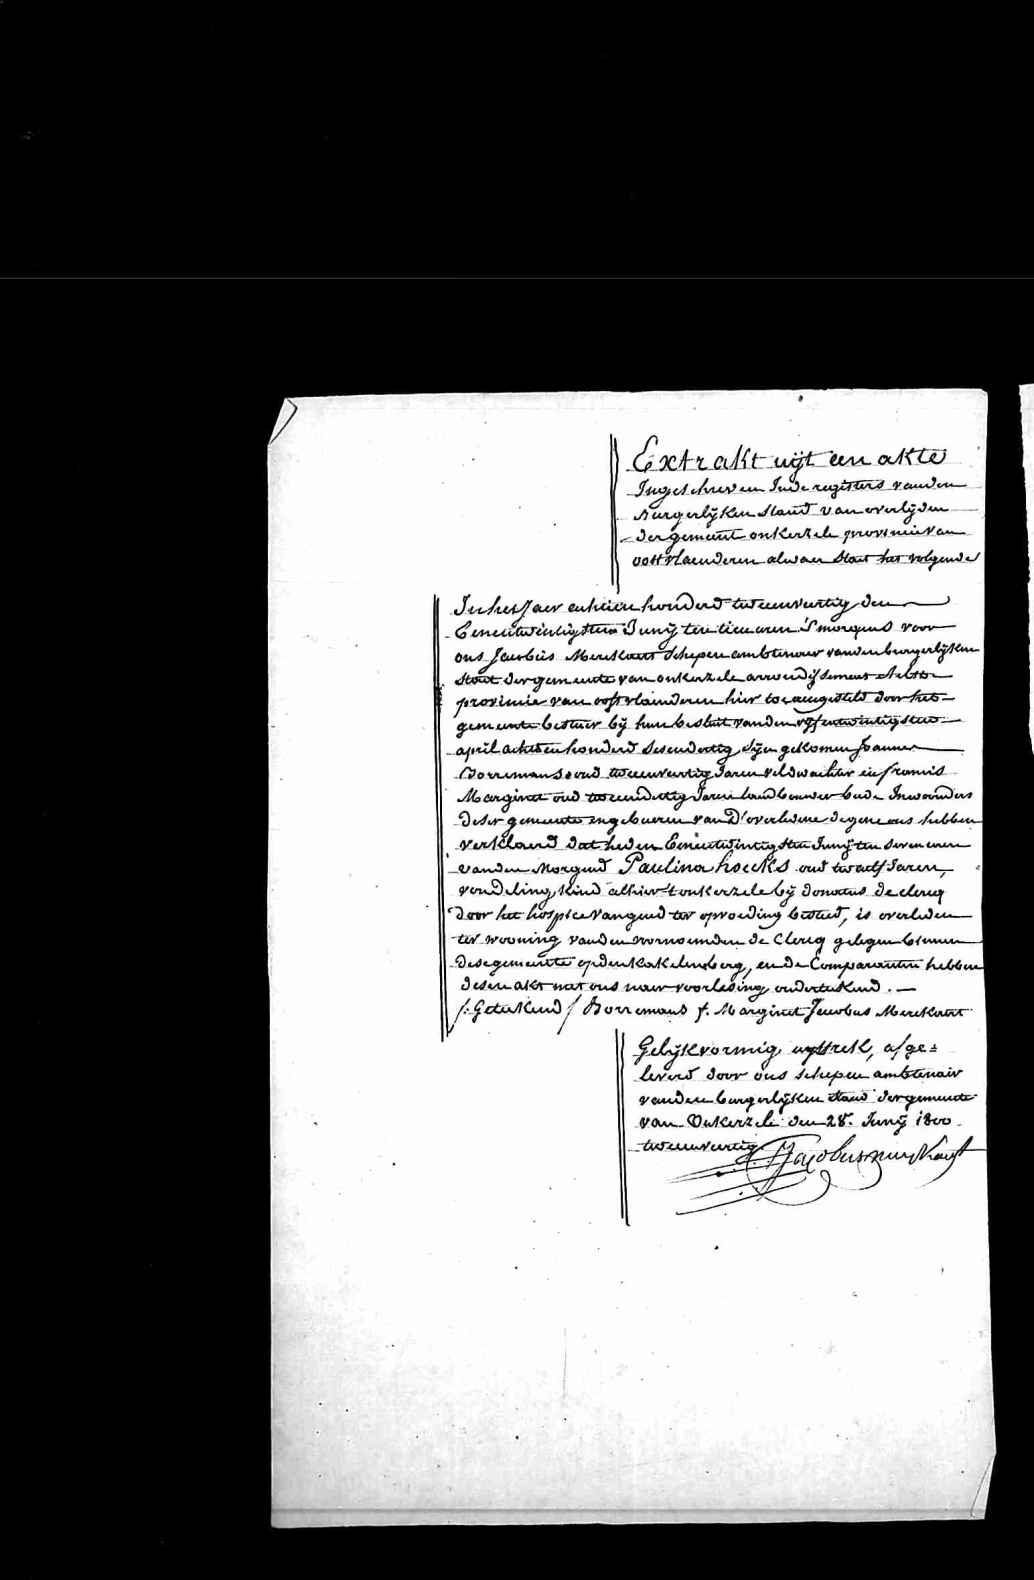 Extrakt uijt een akte
Ingeschreven Inde registers vanden
Burgerlijken Stand van overlijden
der gemeente onkerzele provincie van
oostvlaenderen alwaer staet het volgende
In het Jaer achtien honderd tweeenvertig den
Eenentwintigsten Junij ten tien uren 's morgens voor
ons Jacobus Merckaert Schepen ambtenaer vanden burgerlijken
Staet der gemeente van onkerzele arrondijsement Aelst
provincie van oostvlaenderen hier toe aengesteld door het
gemeente bestuer bij hun besluit vanden vijfentwintigsten
april achttienhonderd sesendertig, sijn gekomen Joannes
Borremans oud tweeenvertig Jaren veldwachter en francis
Marginet oud tweendertig Jaren landbouwer beide Inwoonders
deser gemeente en gebueren van d'overledene degene ons hebben
verklaerd dat heden Eenentwintigsten Junij ten seven uren
vanden Morgend Paulina hoecks oud twaelf Jaren,
vondeling kind alhier t'onkerzele bij donatus de clercq
door het hospice van gend ter opvoeding besteed, is overleden
ter wooning vanden vornoemden de Clercq gelegen binnen
dese gemeente op den Kakelenberg, en de Comparanten hebben
desen akt met ons naer voorlesing onderteekend. —
/: Geteekend / Borremans f. Marginet Jacobus Merckaert
Gelijkvormig uijttrek, afge=
leverd door ons schepen ambtenair
vanden burgerlijken stand der gemeente
van Onkerzele den 28. Junij 1800
tweeenvertig
Jacobus merckaert